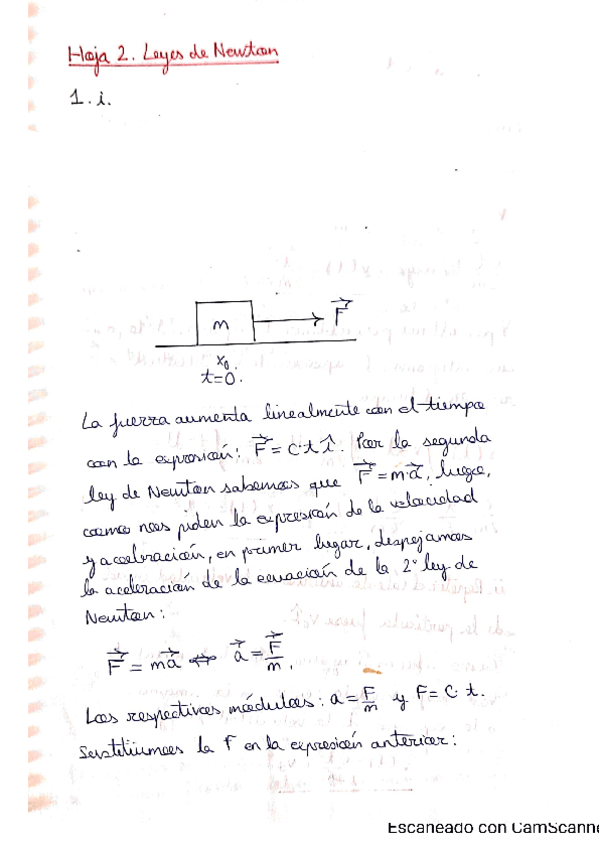 Hoja 2. Leyes de Newton
1. i.
m
F⃗
x₀
t=0.
La fuerza aumenta linealmente con el tiempo
con la expresión: F⃗ = C·t î. Por la segunda
ley de Newton sabemos que F⃗ = m·a⃗, luego,
como nos piden la expresión de la velocidad
y aceleración, en primer lugar, despejamos
la aceleración de la ecuación de la 2ª ley de
Newton:
F⃗ = ma⃗ ⇔ a⃗ = F⃗/m.
Los respectivos módulos: a = F/m y F = C·t.
Sustituimos la F en la expresión anterior:
Escaneado con CamScanne